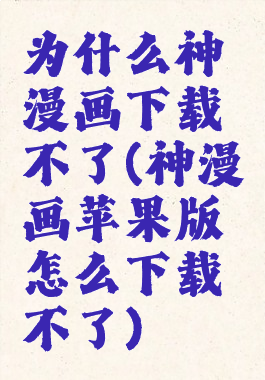 为什么神
漫画下载
不了(神漫
画苹果版
怎么下载
不了)